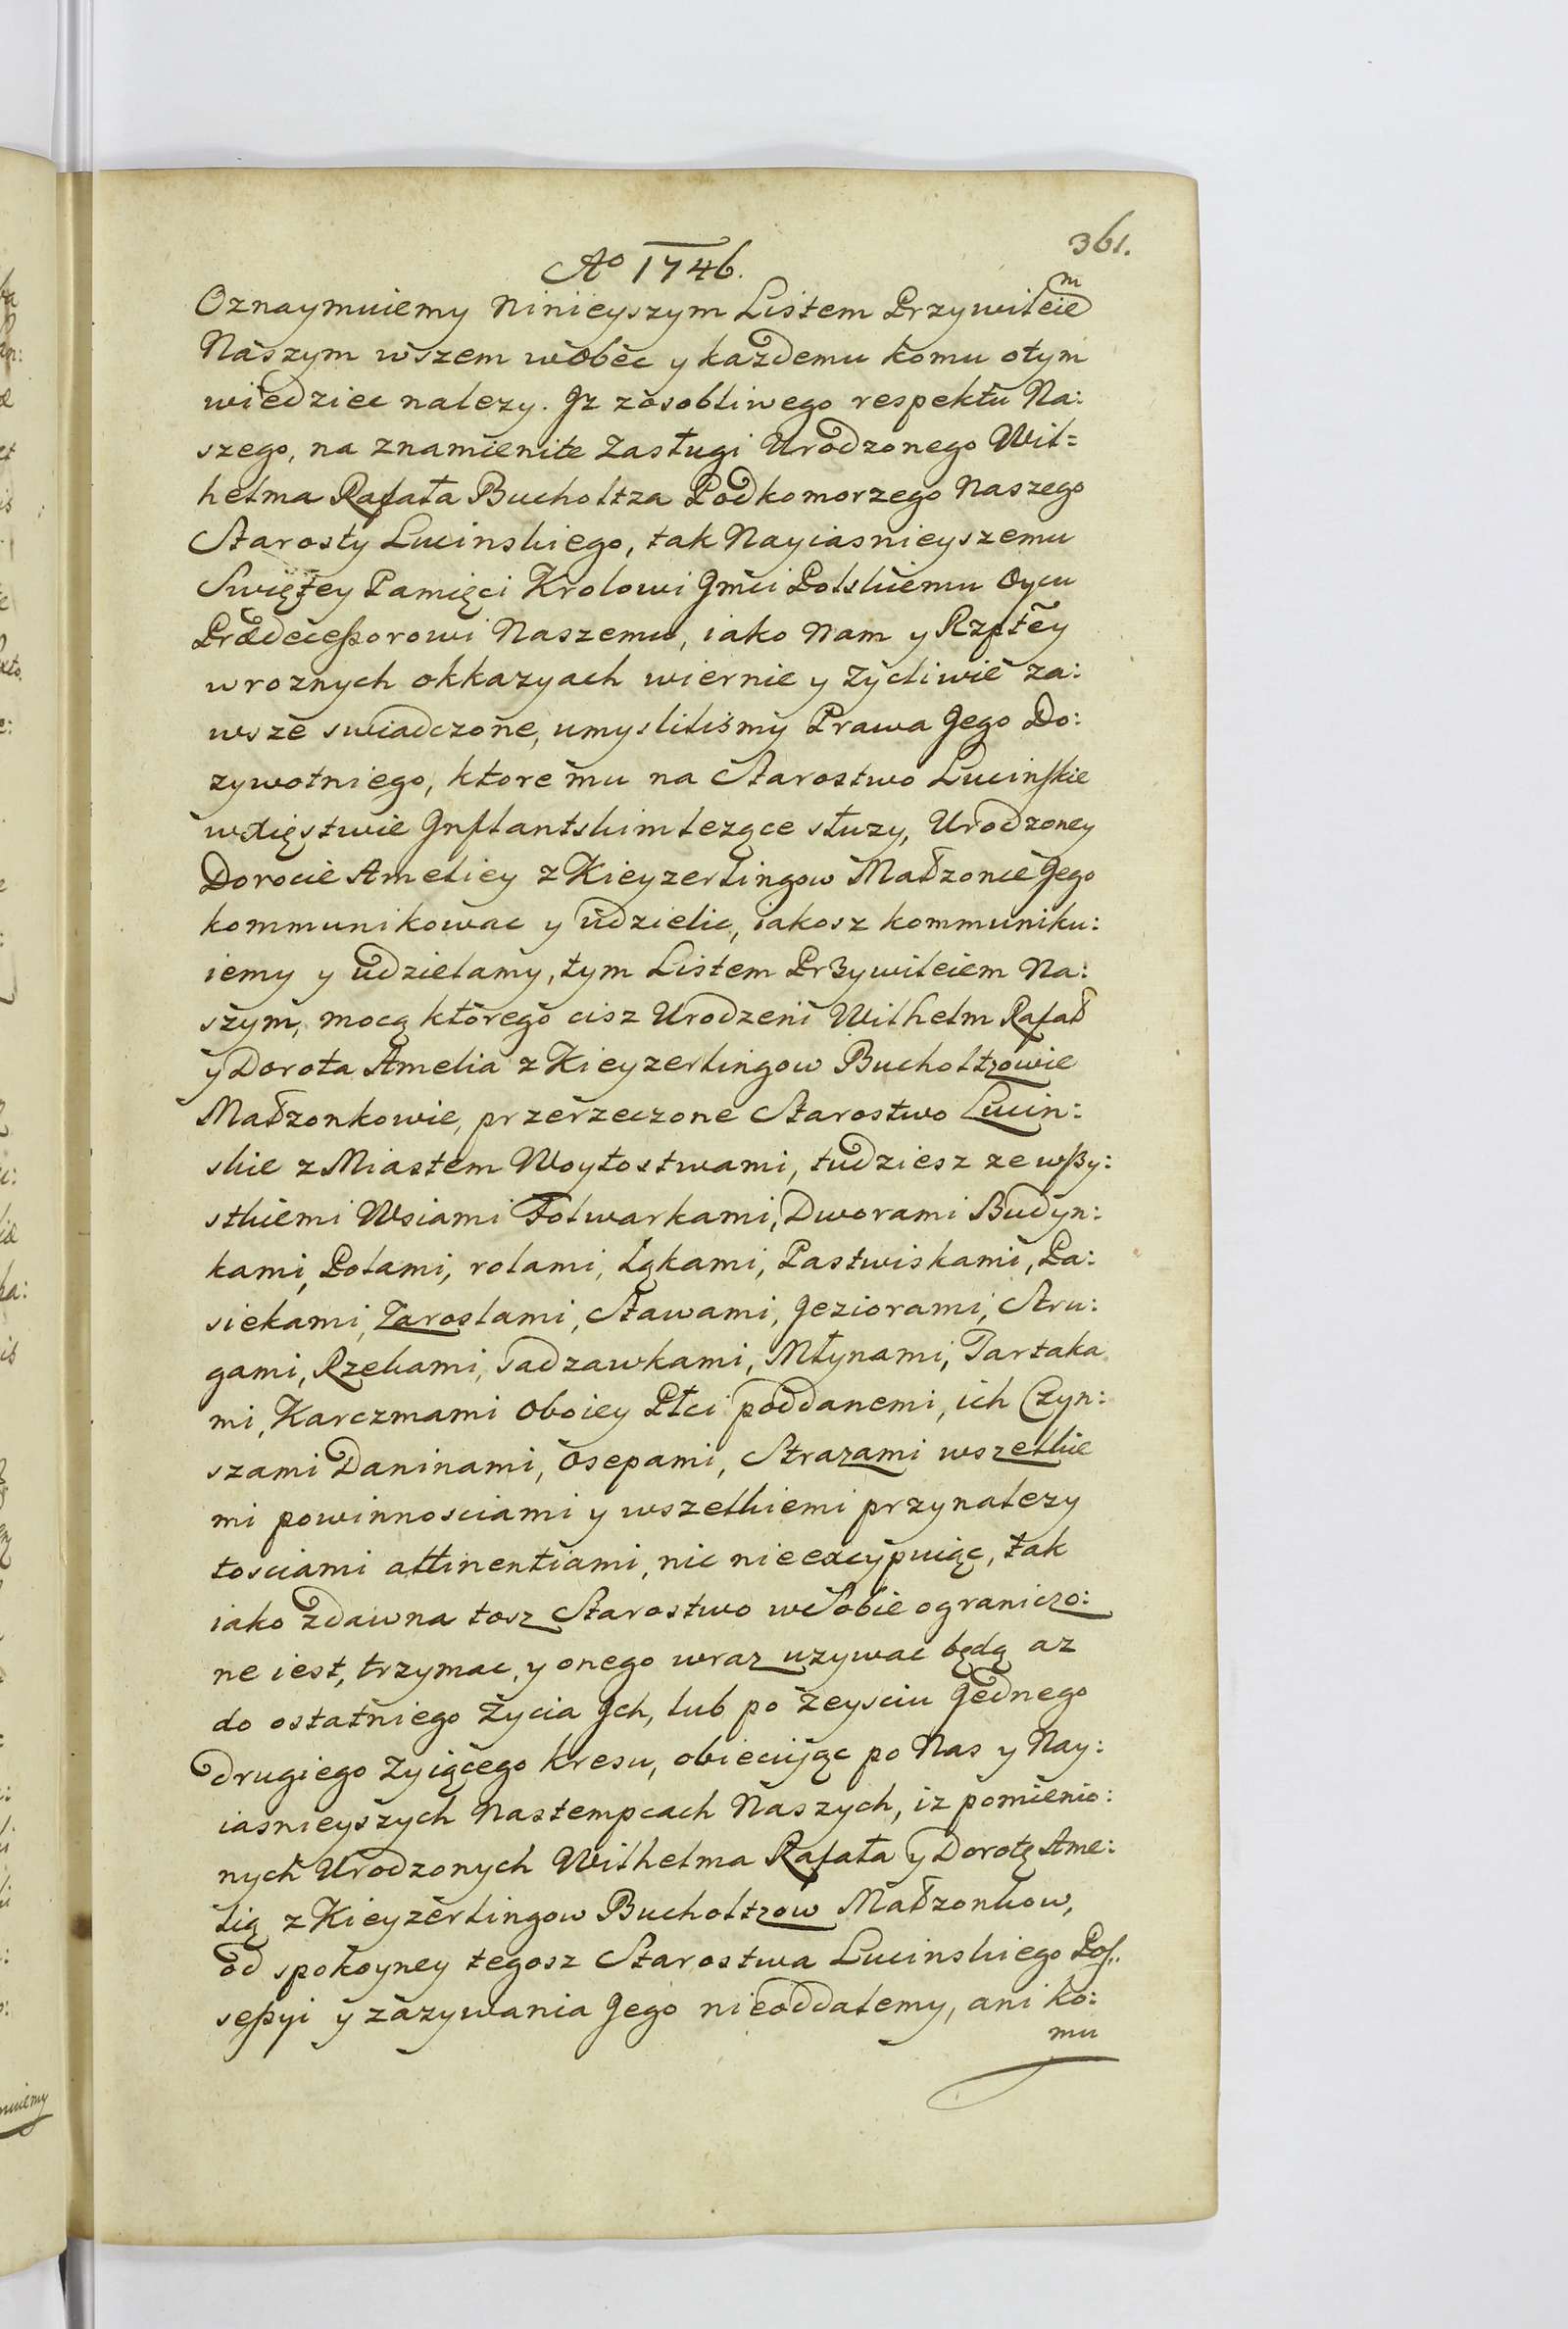 361.
Ao 1746.
Oznaymuiemy Ninieyszym Listem Przywileiem
Naszym wszem wobec y każdemu komu otym
wiedziec nalezy. Jz zosobliwego respektu Na:
szego, na znamienite Zasługi Urodzonego Wil=
helma Rafała Bucholtza Podkomorzego Naszego
Starosty Lucinskiego, tak Nayiasnieyszemu
Swiętey Pamięci Krolowi Jmci Polskiemu Oycu
Prædeceßorowi Naszemu, iako Nam y Rzptey
w roznych okkazyach wiernie y Zyczliwie za:
wsze swiadczone, umyslilismy Prawa Jego Do:
zywotniego, ktore mu na Starostwo Lucinskie
wXięstwie Jnflantskim lezące słuzy, Urodzoney
Dorocie Ameliey z Kieyzerlingow Małzonce Jego
kommunikowac y udzielic, iakosz kommuniku:
iemy y udzielamy, tym Listem Przywileiem Na:
szym, mocą którego cisz Urodzeni Wilhelm Rafał
y Dorota Amelia z Kieyzerlingow Bucholtzowie
Małzonkowie, przerzeczone Starostwo Lucin:
skie z Miastem Woytostwami, tudziesz ze wßy:
stkiemi Wsiami Folwarkami, Dworami Budyn:
kami, Polami, rolami, Łąkami, Pastwiskami, Pa:
siekami, Zaroslami, Stawami, Jeziorami, Stru:
gami, Rzekami, sadzawkami, Młynami, Tartaka
mi, Karczmami Oboiey Płci poddanemi, ich Czyn:
szami Daninami, Osepami, Strazami wszelkie
mi powinnosciami y wszelkiemi przynalezy
tosciami attinentiami, nic nieexcypuiąc, tak
iako zdawna tosz Starostwo wSobie ograniczo:
ne iest, trzymac, y onego wraz uzywac będą az
do ostatniego Zycia Jch, lub po Zeysciu Jednego
drugiego Zyiącego kresu, obiecuiąc po Nas y Nay:
iasnieyszych Nastempcach Naszych, iz pomienio:
nych Urodzonych Wilhelma Rafała y Dorotę Ame:
lią z Kieyzerlingow Bucholtzow Małzonkow,
od spokoyney tegosz Starostwa Lucinskiego Pos:
seßyi y zazywania Jego nieoddalemy, ani ko:
mu